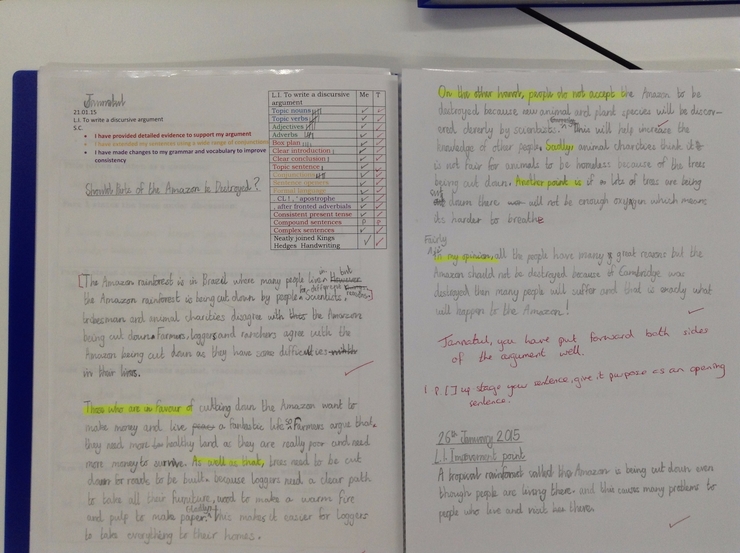 Jannatul
21.01.15
L.I. To write a discursive argument
S.C.
• I have provided detailed evidence to support my argument
• I have extended my sentences using a wide range of conjunctions
• I have made changes to my grammar and vocabulary to improve
consistency
Should More of the Amazon be Destroyed?
L.I. To write a discursive argument Me T
Topic nouns
Topic verbs
Adjectives
Adverbs
Box plan
Clear introduction
Clear conclusion
Topic sentence
Conjunctions
Sentence openers
Formal language
. CL ! , ' apostrophe
, after fronted adverbials
Consistent present tense
Compound sentences P P
Complex sentences
Neatly joined Kings
Hedges Handwriting
[The Amazon rainforest is in Brazil where many people live in but However
the Amazon rainforest is being cut down by people for different reasons]. Scientists,
tribesman and animal charities disagree with the Amazon
being cut down. Farmers, loggers and ranchers agree with the
Amazon being cut down as they have some difficulties
in their lives.
Those who are in favour of cutting down the Amazon want to
make money and live a fantastic life. Farmers argue that
they need more healthy land as they are really poor and need
more money to survive. As well as that, trees need to be cut
down for roads to be built because loggers need a clear path
to take all their furniture, wood to make a warm fire
and pulp to make paper. this makes it easier for loggers
to take everything to their homes.
On the other hand, people do not accept the Amazon to be
destroyed because new animal and plant species will be discov-
ered cleverly by scientists. This will help increase the
knowledge of other people. Sadly, animal charities think it
is not fair for animals to be homeless because of the trees
being cut down. Another point is if lots of trees are being
cut down there will not be enough oxygen which means
its harder to breathe.
Fairly
In my opinion, all the people have many great reasons but the
Amazon should not be destroyed because if Cambridge was
destroyed then many people will suffer and that is exactly what
will happen to the Amazon!
Jannatul, you have put forward both sides
of the argument well.
I.P. [ ] up-stage your sentence, give it purpose as an opening
sentence.
26th January 2015
L.I. Improvement point
A tropical rainforest called the Amazon is being cut down even
though people are living there and this causes many problems to
people who live and visit there.